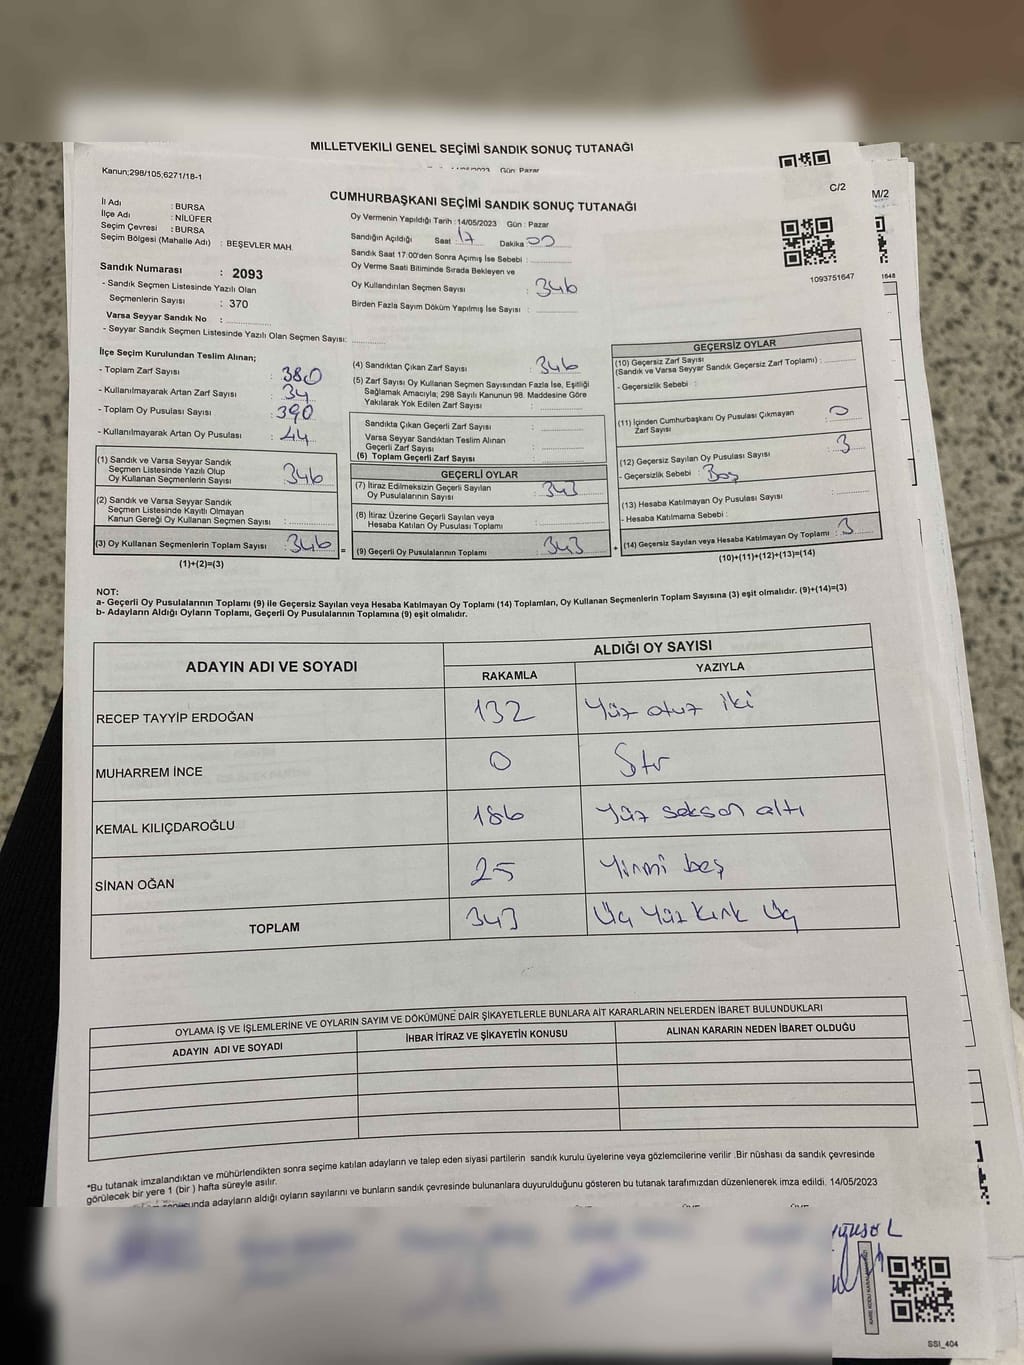 MİLLETVEKİLİ GENEL SEÇİMİ SANDIK SONUÇ TUTANAĞI
Gün: Pazar
Kanun;298/105,6271/18-1
C/2
M/2
CUMHURBAŞKANI SEÇİMİ SANDIK SONUÇ TUTANAĞI
İl Adı : BURSA
İlçe Adı : NİLÜFER
Seçim Çevresi : BURSA
Seçim Bölgesi (Mahalle Adı) : BEŞEVLER MAH.
Oy Vermenin Yapıldığı Tarih :14/05/2023 Gün : Pazar
Sandığın Açıldığı Saat : 17 Dakika : 00
Sandık Saat 17:00'den Sonra Açımış İse Sebebi :
Oy Verme Saati Bitiminde Sırada Bekleyen ve
Oy Kullandırılan Seçmen Sayısı : 346
Birden Fazla Sayım Döküm Yapılmış İse Sayısı :
1093751647
1648
Sandık Numarası : 2093
- Sandık Seçmen Listesinde Yazılı Olan
Seçmenlerin Sayısı : 370
Varsa Seyyar Sandık No :
- Seyyar Sandık Seçmen Listesinde Yazılı Olan Seçmen Sayısı:
İlçe Seçim Kurulundan Teslim Alınan;
- Toplam Zarf Sayısı : 380
- Kullanılmayarak Artan Zarf Sayısı : 34
- Toplam Oy Pusulası Sayısı : 390
- Kullanılmayarak Artan Oy Pusulası : 44
(1) Sandık ve Varsa Seyyar Sandık
Seçmen Listesinde Yazılı Olup
Oy Kullanan Seçmenlerin Sayısı : 346
(2) Sandık ve Varsa Seyyar Sandık
Seçmen Listesinde Kayıtlı Olmayan
Kanun Gereği Oy Kullanan Seçmen Sayısı :
(3) Oy Kullanan Seçmenlerin Toplam Sayısı : 346 =
(1)+(2)=(3)
(4) Sandıktan Çıkan Zarf Sayısı : 346
(5) Zarf Sayısı Oy Kullanan Seçmen Sayısından Fazla İse, Eşitliği
Sağlamak Amacıyla; 298 Sayılı Kanunun 98. Maddesine Göre
Yakılarak Yok Edilen Zarf Sayısı :
Sandıkta Çıkan Geçerli Zarf Sayısı :
Varsa Seyyar Sandıktan Teslim Alınan
Geçerli Zarf Sayısı :
(6) Toplam Geçerli Zarf Sayısı :
GEÇERLİ OYLAR
(7) İtiraz Edilmeksizin Geçerli Sayılan
Oy Pusulalarının Sayısı : 343
(8) İtiraz Üzerine Geçerli Sayılan veya
Hesaba Katılan Oy Pusulası Toplamı :
(9) Geçerli Oy Pusulalarının Toplamı : 343 +
GEÇERSİZ OYLAR
(10) Geçersiz Zarf Sayısı
(Sandık ve Varsa Seyyar Sandık Geçersiz Zarf Toplamı) :
- Geçersizlik Sebebi :
(11) İçinden Cumhurbaşkanı Oy Pusulası Çıkmayan
Zarf Sayısı : 0
(12) Geçersiz Sayılan Oy Pusulası Sayısı : 3
- Geçersizlik Sebebi : Boş
(13) Hesaba Katılmayan Oy Pusulası Sayısı :
- Hesaba Katılmama Sebebi :
(14) Geçersiz Sayılan veya Hesaba Katılmayan Oy Toplamı : 3
(10)+(11)+(12)+(13)=(14)
NOT:
a- Geçerli Oy Pusulalarının Toplamı (9) ile Geçersiz Sayılan veya Hesaba Katılmayan Oy Toplamı (14) Toplamları, Oy Kullanan Seçmenlerin Toplam Sayısına (3) eşit olmalıdır. (9)+(14)=(3)
b- Adayların Aldığı Oyların Toplamı, Geçerli Oy Pusulalarının Toplamına (9) eşit olmalıdır.
ADAYIN ADI VE SOYADI
ALDIĞI OY SAYISI
RAKAMLA YAZIYLA
RECEP TAYYİP ERDOĞAN 132 Yüz otuz iki
MUHARREM İNCE 0 Sıfır
KEMAL KILIÇDAROĞLU 186 Yüz seksen altı
SİNAN OĞAN 25 Yirmi beş
TOPLAM 343 Üç Yüz Kırk Üç
OYLAMA İŞ VE İŞLEMLERİNE VE OYLARIN SAYIM VE DÖKÜMÜNE DAİR ŞİKAYETLERLE BUNLARA AİT KARARLARIN NELERDEN İBARET BULUNDUKLARI
ADAYIN ADI VE SOYADI İHBAR İTİRAZ VE ŞİKAYETİN KONUSU ALINAN KARARIN NEDEN İBARET OLDUĞU
*Bu tutanak imzalandıktan ve mühürlendikten sonra seçime katılan adayların ve talep eden siyasi partilerin sandık kurulu üyelerine veya gözlemcilerine verilir .Bir nüshası da sandık çevresinde
görülecek bir yere 1 (bir ) hafta süreyle asılır.
adayların aldığı oyların sayılarını ve bunların sandık çevresinde bulunanlara duyurulduğunu gösteren bu tutanak tarafımızdan düzenlenerek imza edildi. 14/05/2023
SSI_404